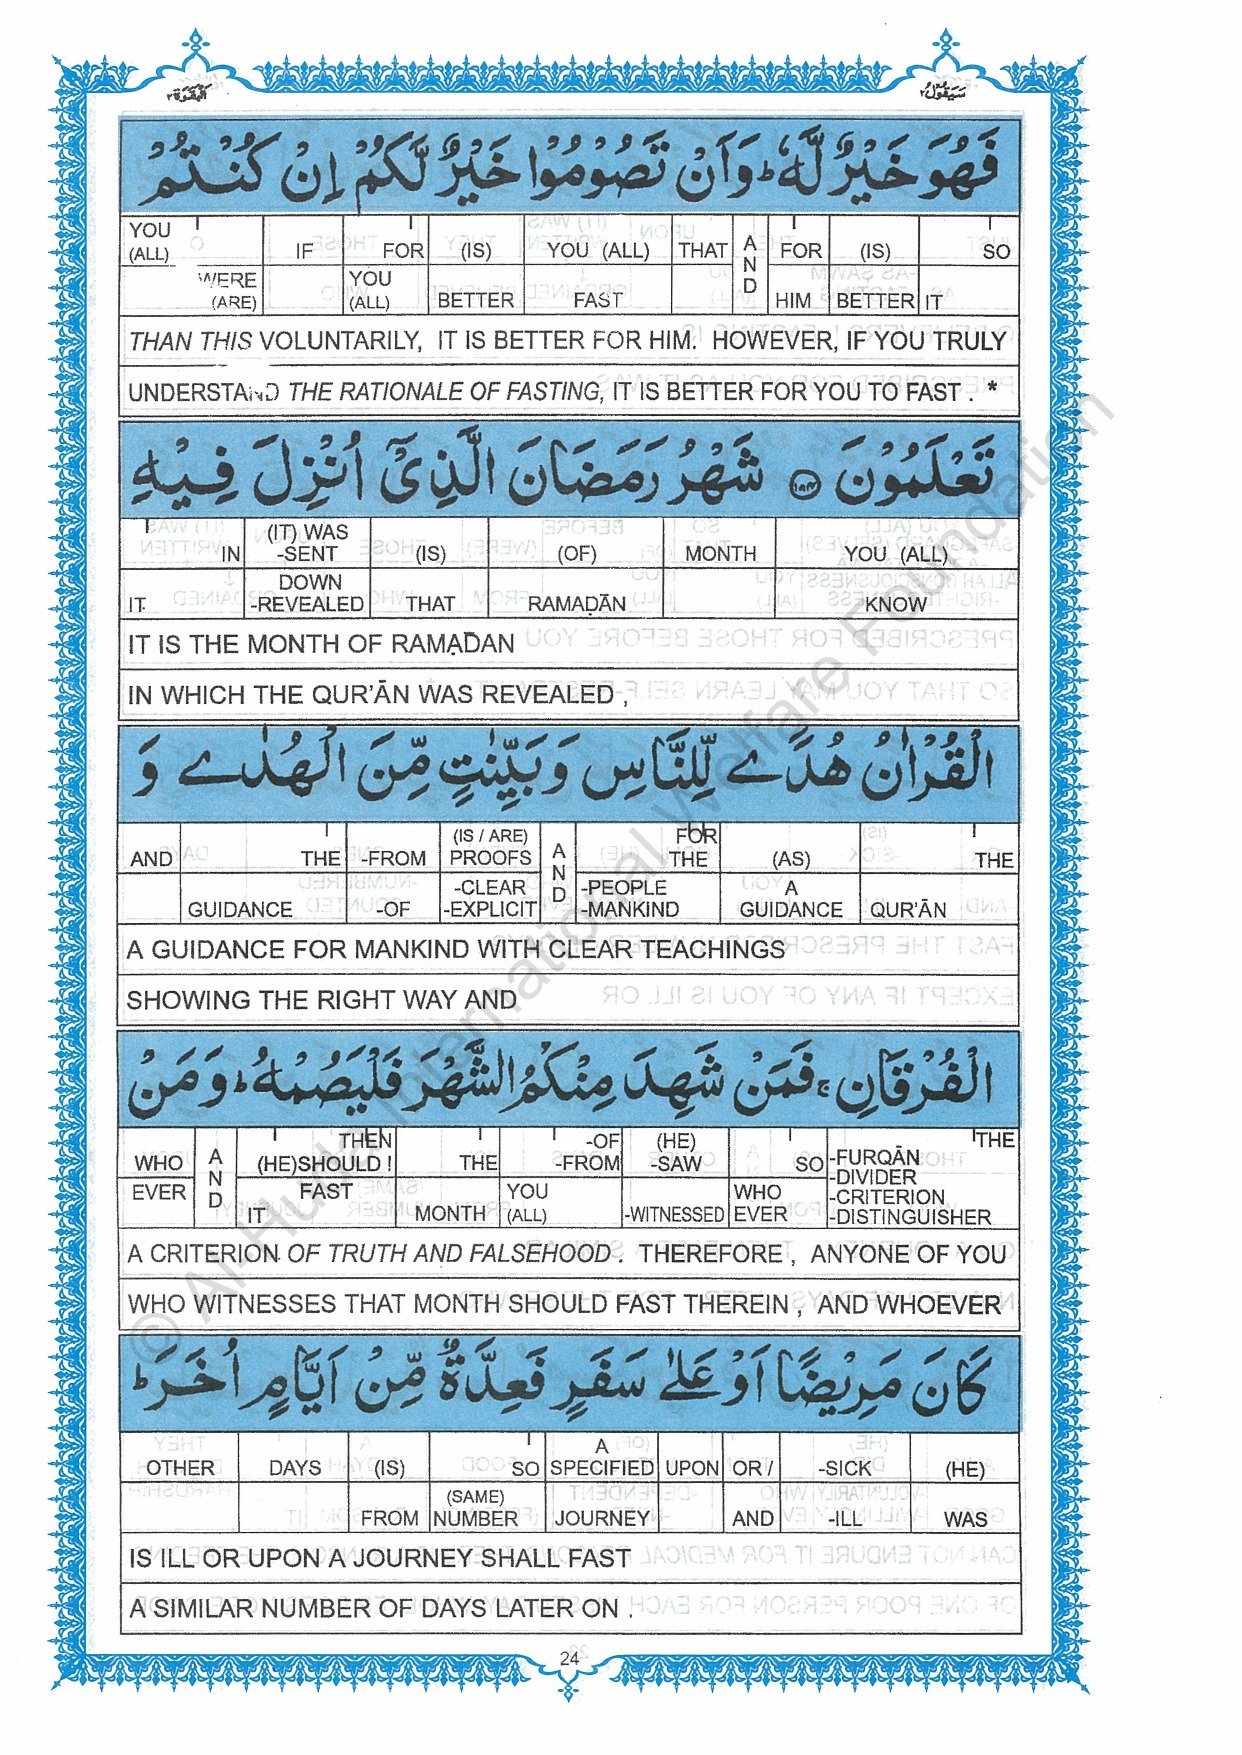 البقرة ٢ سيقول ٢
فَهُوَ خَيْرٌ لَّهٗ ؕ وَاَنْ تَصُوْمُوْا خَيْرٌ لَّكُمْ اِنْ كُنْتُمْ
YOU (ALL) IF FOR (IS) YOU (ALL) THAT AND FOR (IS) SO
WERE (ARE) YOU (ALL) BETTER FAST HIM BETTER IT
THAN THIS VOLUNTARILY, IT IS BETTER FOR HIM. HOWEVER, IF YOU TRULY
UNDERSTAND THE RATIONALE OF FASTING, IT IS BETTER FOR YOU TO FAST . *
تَعْلَمُوْنَ ﴿۱۸۴﴾ شَهْرُ رَمَضَانَ الَّذِیْۤ اُنْزِلَ فِيْهِ
IN (IT) WAS -SENT (IS) (OF) MONTH YOU (ALL)
IT DOWN -REVEALED THAT RAMAḌĀN KNOW
IT IS THE MONTH OF RAMAḌAN
IN WHICH THE QUR’ĀN WAS REVEALED ,
الْقُرْاٰنُ هُدًى لِّلنَّاسِ وَبَيِّنٰتٍ مِّنَ الْهُدٰى وَ
AND THE -FROM (IS / ARE) PROOFS AND FOR THE (AS) THE
GUIDANCE -OF -CLEAR -EXPLICIT -PEOPLE -MANKIND A GUIDANCE QUR’ĀN
A GUIDANCE FOR MANKIND WITH CLEAR TEACHINGS
SHOWING THE RIGHT WAY AND
الْفُرْقَانِ ۚ فَمَنْ شَهِدَ مِنْكُمُ الشَّهْرَ فَلْيَصُمْهُ ؕ وَمَنْ
WHO AND THEN (HE)SHOULD ! THE -OF -FROM (HE) -SAW SO THE -FURQĀN -DIVIDER
EVER FAST IT MONTH YOU (ALL) -WITNESSED WHO EVER -CRITERION -DISTINGUISHER
A CRITERION OF TRUTH AND FALSEHOOD . THEREFORE , ANYONE OF YOU
WHO WITNESSES THAT MONTH SHOULD FAST THEREIN , AND WHOEVER
كَانَ مَرِيْضًا اَوْ عَلٰى سَفَرٍ فَعِدَّةٌ مِّنْ اَيَّامٍ اُخَرَ ؕ
OTHER DAYS (IS) SO A SPECIFIED UPON OR / -SICK (HE)
FROM (SAME) NUMBER JOURNEY AND -ILL WAS
IS ILL OR UPON A JOURNEY SHALL FAST
A SIMILAR NUMBER OF DAYS LATER ON .
24
© Al-Huda International Welfare Foundation